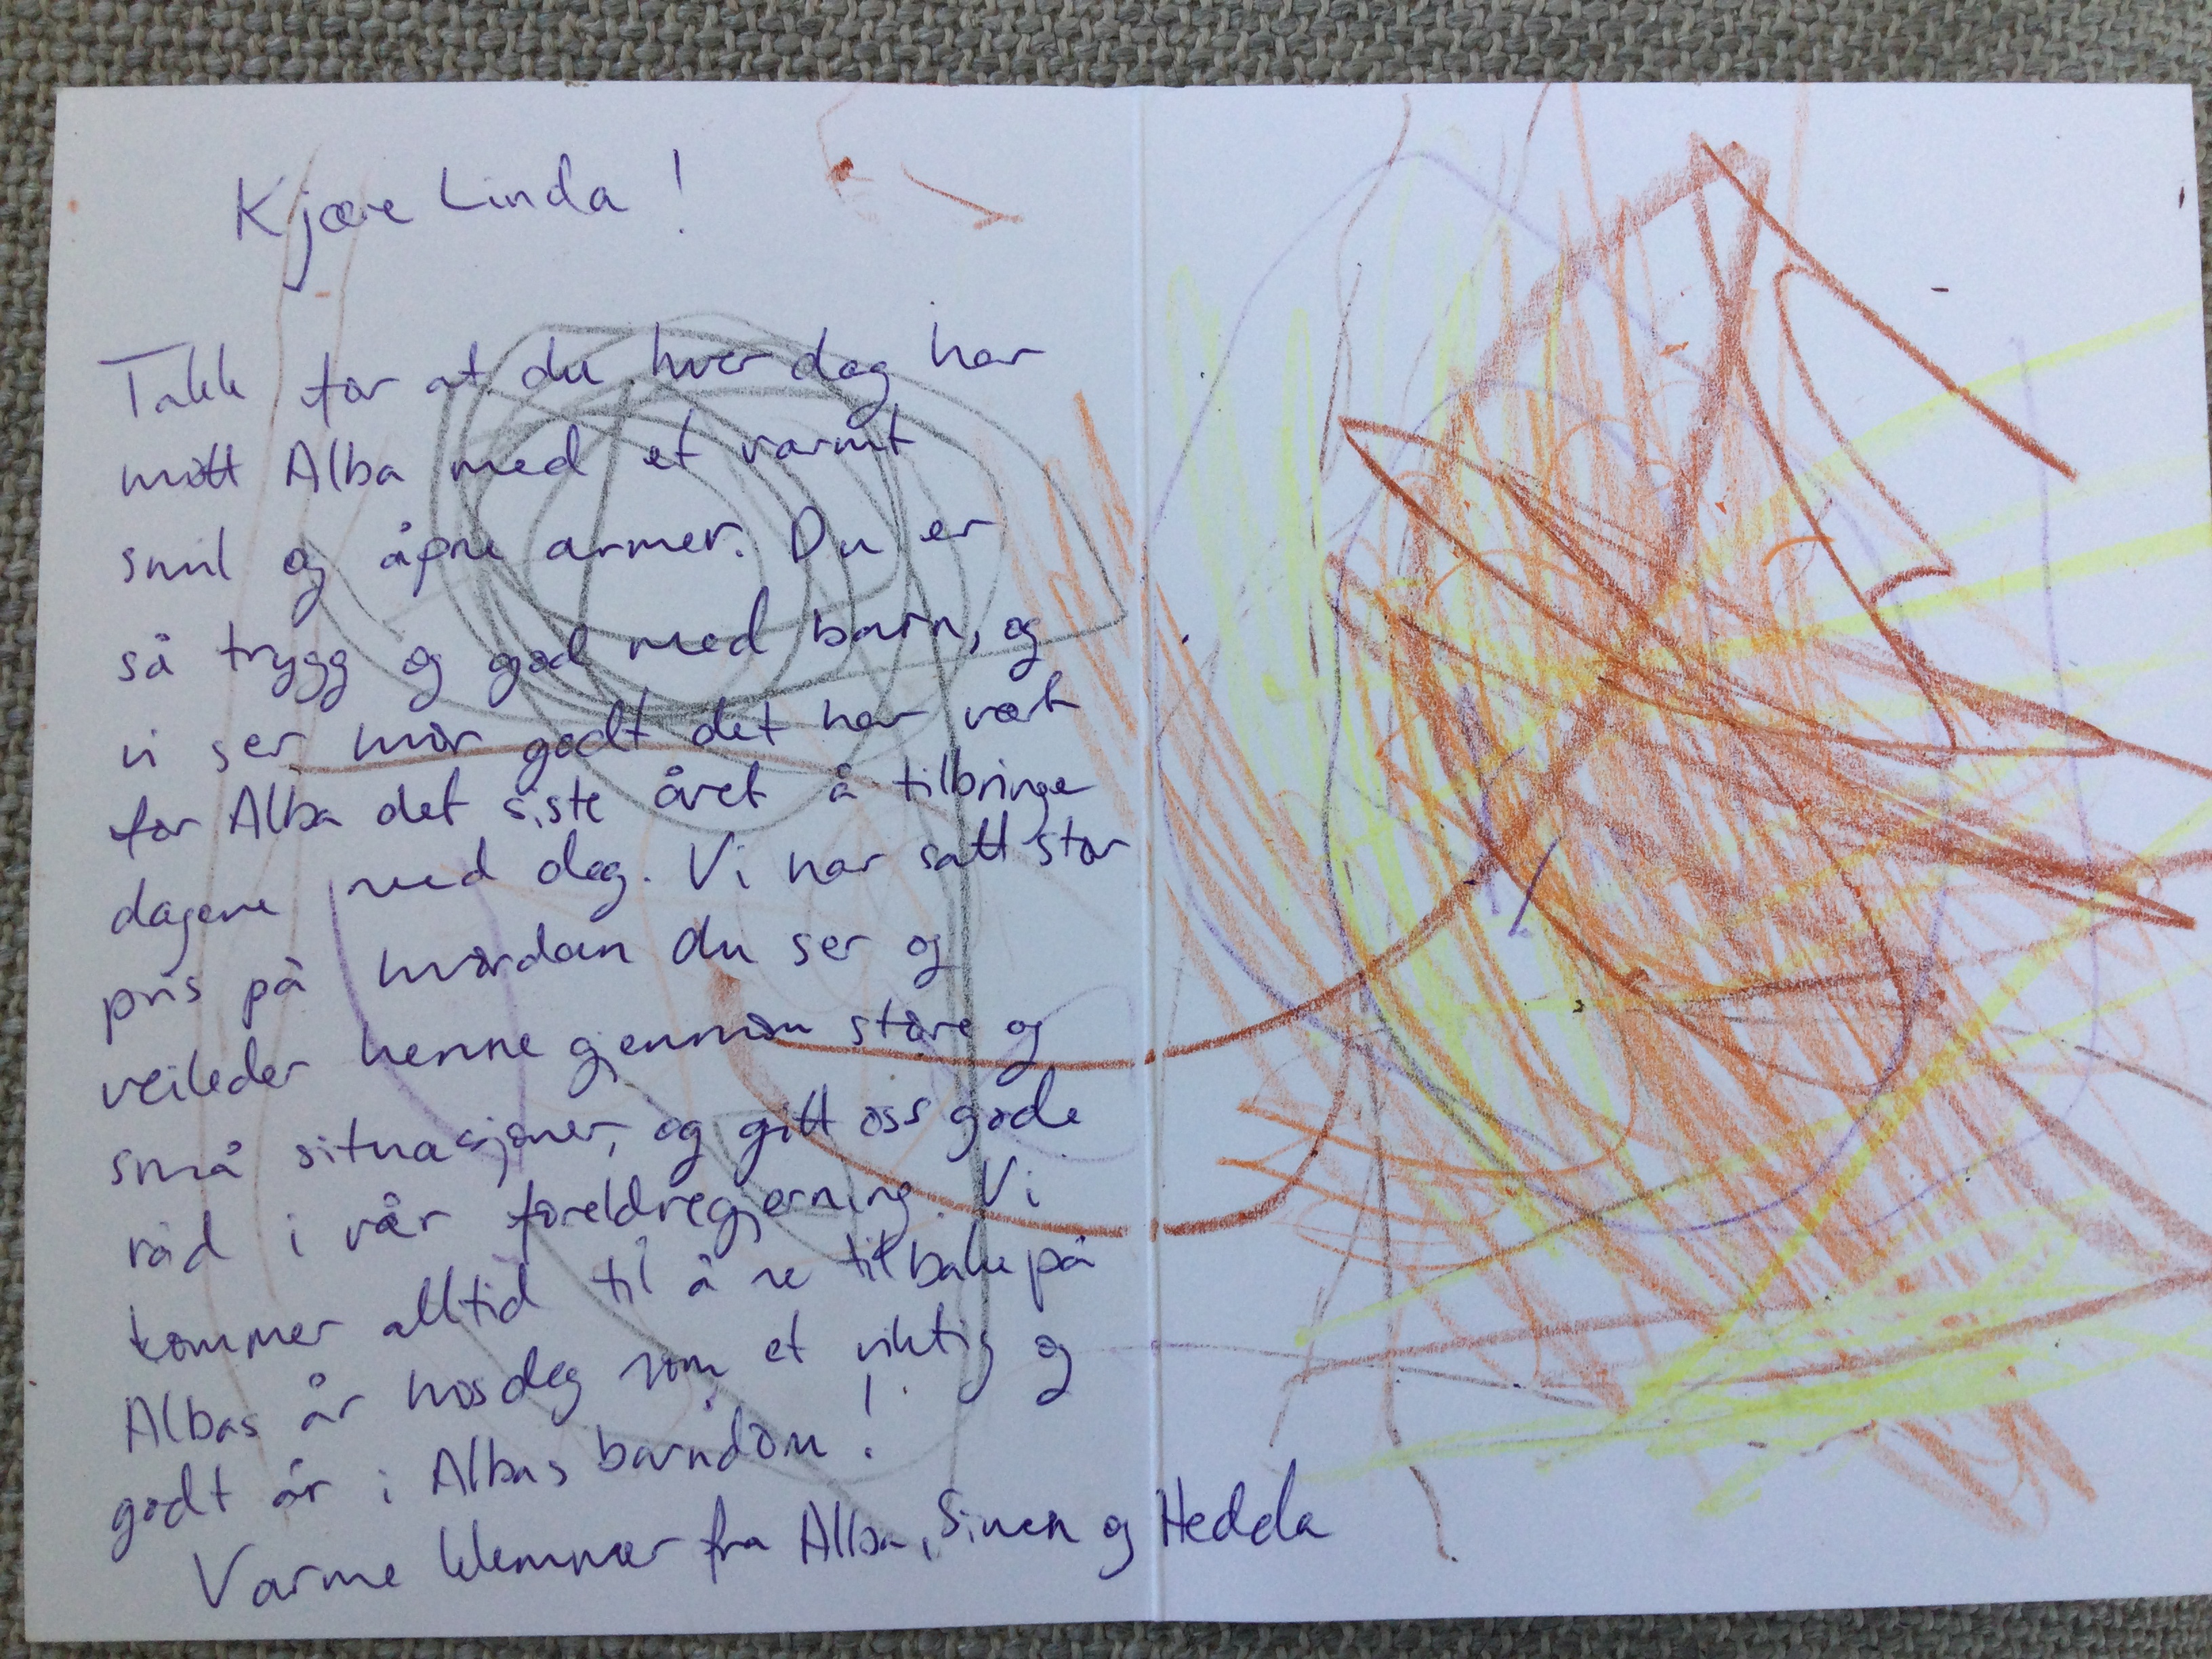 Kjære Linda!
Takk for at du hver dag har
møtt Alba med et varmt
smil og åpne armer. Du er
så trygg og god med barn, og
vi ser hvor godt det har vært
for Alba det siste året å tilbringe
dagene med deg. Vi har satt stor
pris på hvordan du ser og
veileder henne gjennom store og
små situasjoner, og gitt oss gode
råd i vår foreldregjerning. Vi
kommer alltid til å se tilbake på
Albas år hos deg som et viktig og
godt år i Albas barndom!
Varme klemmer fra Alba, Simen og Hedda